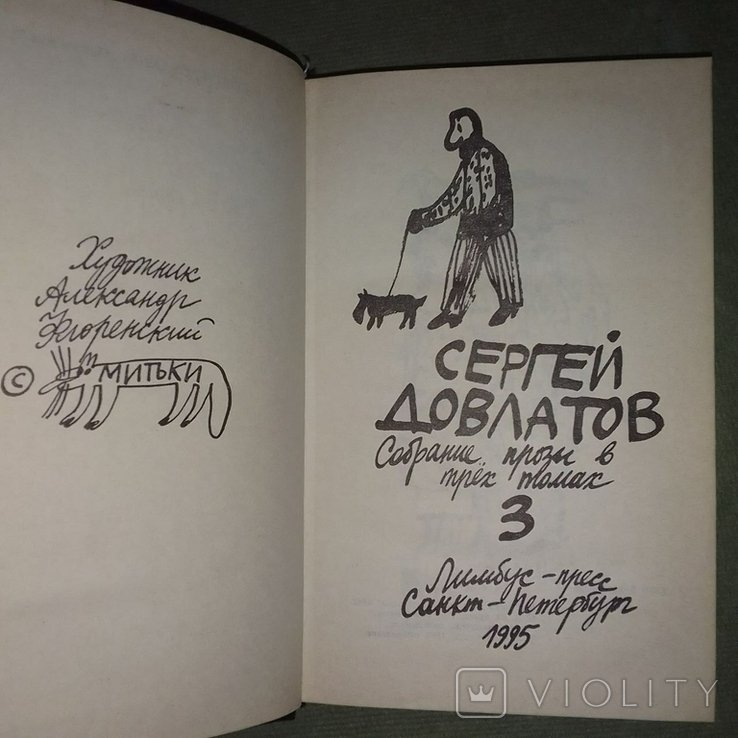 Художник
Александр
Флоренский
© МИТЬКИ
СЕРГЕЙ
ДОВЛАТОВ
Собрание прозы в
трёх томах
3
Лимбус-пресс
Санкт-Петербург
1995
VIOLITY